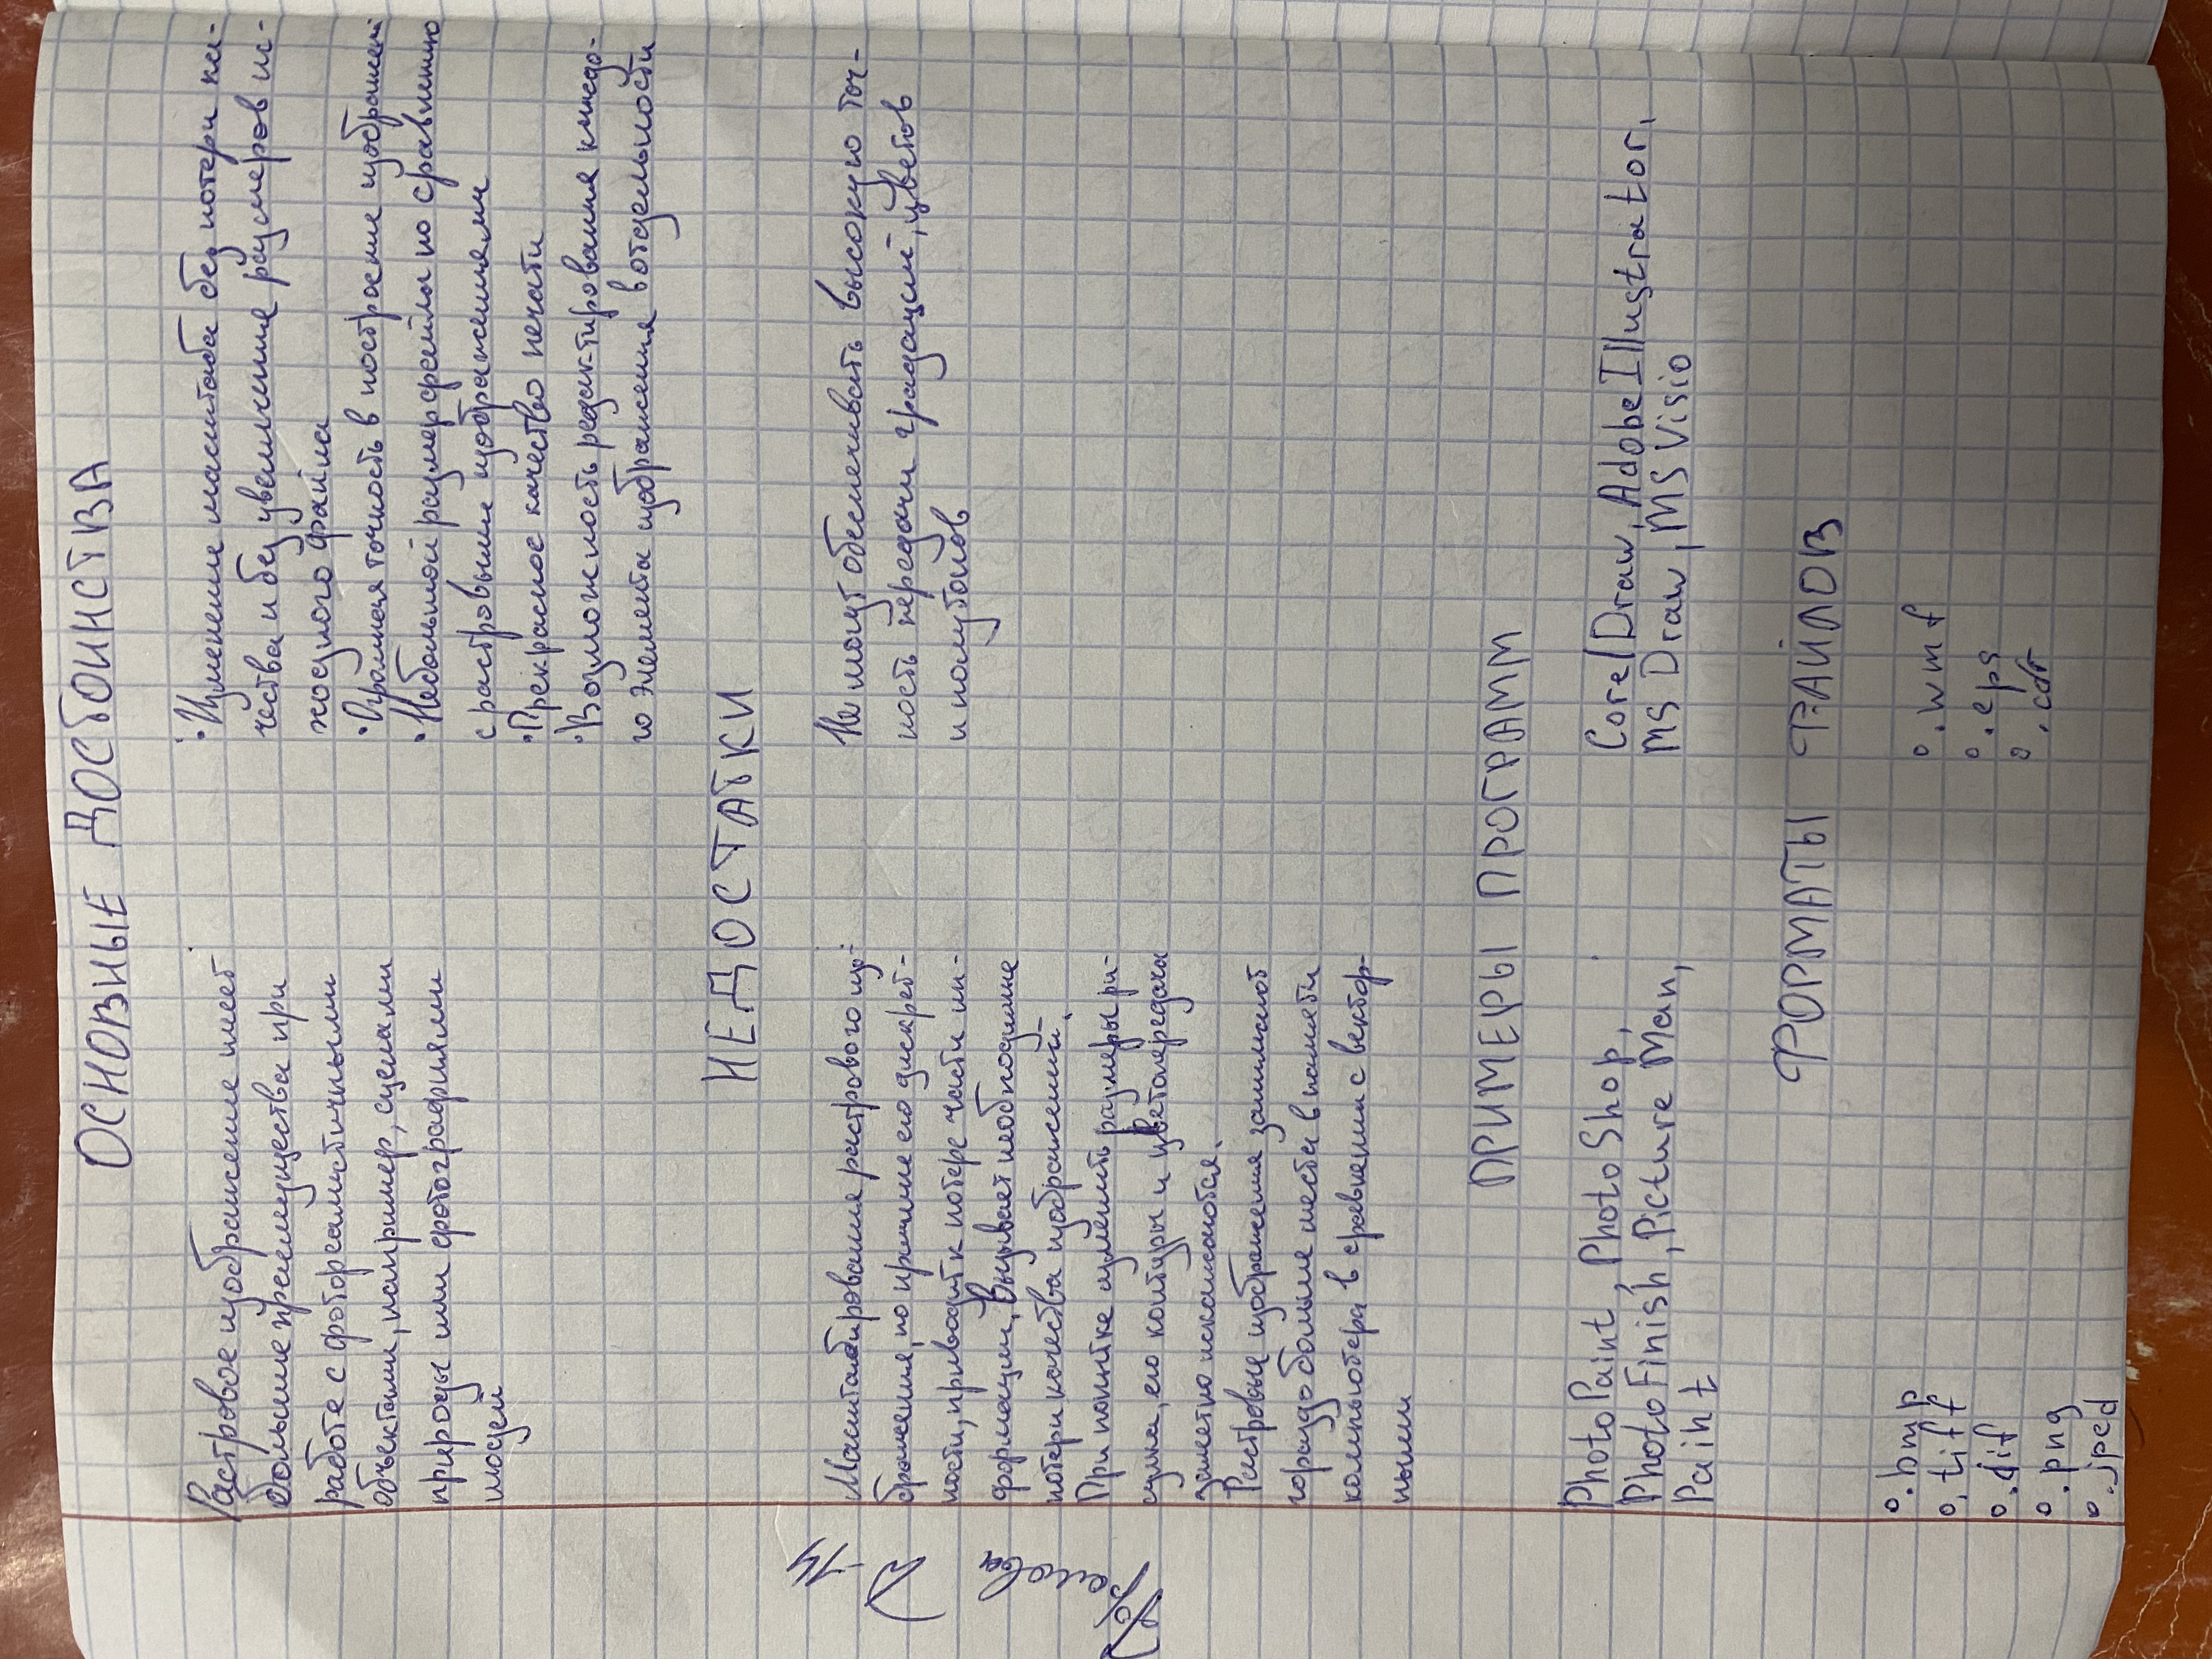 ОСНОВНЫЕ ДОСТОИНСТВА
Растровое изображение имеет
большие преимущества при
работе с фотореалистичными
объектами, например, сценами
природы или фотографиями
людей
• Изменение масштаба без потери ка-
чества и без увеличение размеров ис-
ходного файла
• Огромная точность в построение изображений
• Небольшой размер файла по сравнению
с растровыми изображениями
• Прекрасное качество печати
• Возможность редактирования каждо-
го элемента изображения в отдельности
НЕДОСТАТКИ
Масштабирование растрового изо-
бражения, по причине его дискрет-
ности, приводит к потере части ин-
формации. Вызывает необходимые
потери качества изображений.
При попытке изменить размеры ри-
сунка, его контуры и цветопередача
заметно искажаются.
Растровые изображения занимают
гораздо больше места в памяти
компьютера в сравнении с вектор-
ными
Не могут обеспечивать высокую точ-
ность передачи градаций, цветов
и полутонов
ПРИМЕРЫ ПРОГРАММ
PhotoPaint, PhotoShop,
PhotoFinish, Picture Man,
Paint
CorelDraw, AdobeIllustrator,
MS Draw, MS Visio
ФОРМАТЫ ФАЙЛОВ
° .bmp
° .tiff
° .gif
° .png
° .jped
° .wmf
° .eps
° .cdr